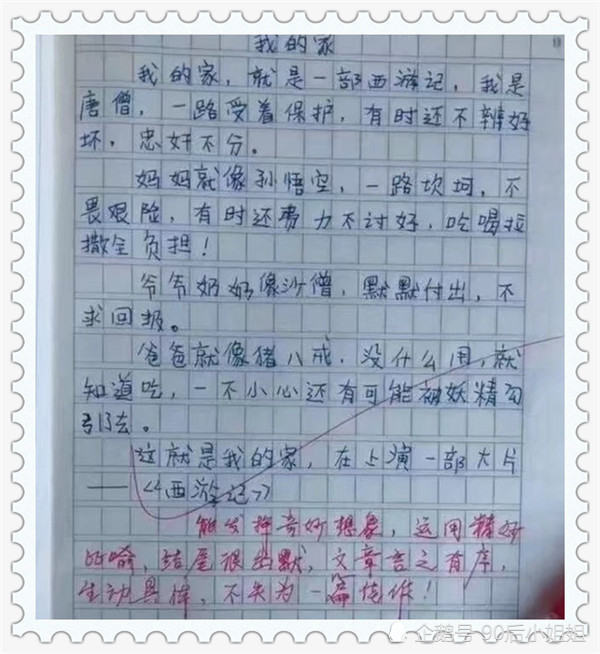 我的家
我的家，就是一部西游记，我是
唐僧，一路受着保护，有时还不辨好
坏，忠奸不分。
妈妈就像孙悟空，一路坎坷，不
畏艰险，有时还费力不讨好，吃喝拉
撒全负担！
爷爷奶奶像沙僧，默默付出，不
求回报。
爸爸就像猪八戒，没什么用，就
知道吃，一不小心还有可能被妖精勾
引去。
这就是我的家，在上演一部大片
——《西游记》
能发挥奇妙想象，运用精妙
的喻，结尾很幽默，文章言之有序，
生动具体，不失为一篇佳作！
企鹅号 90后小姐姐